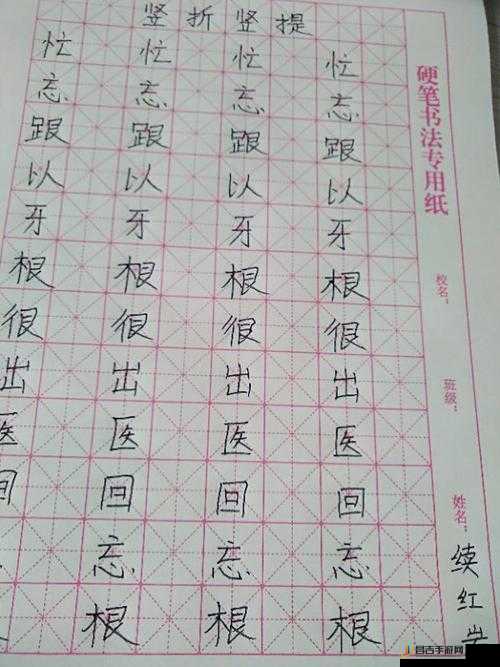 竖折竖提
忙 忙 忙 忙
忘 忘 忘 忘
跟 跟 跟 跟
以 以 以 以
牙 牙 牙 牙
根 根 根 根
很 很 很 很
出 出 出 出
医 医 医 医
回 回 回 回
忘 忘 忘
根 根 根
硬笔书法专用纸
校名：
班级：
姓名：续红
昌吉手游网